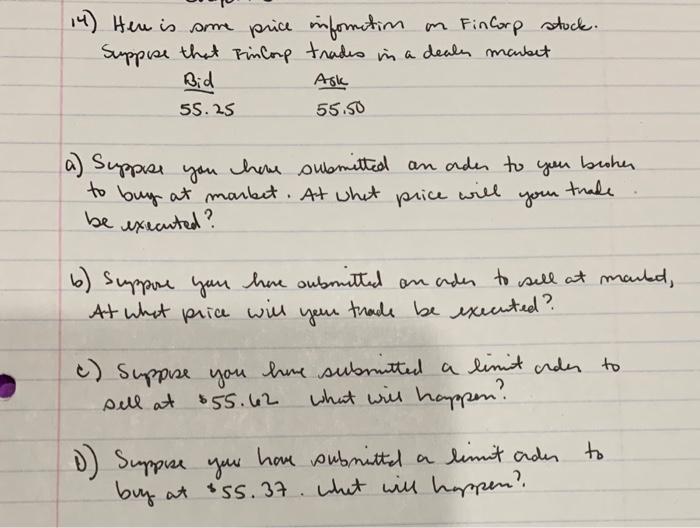 14) Here is some price information on FinCorp stock.
Suppose that FinCorp trades in a dealer market
Bid Ask
55.25 55.50
a) Suppose you have submitted an order to your broker
to buy at market. At what price will your trade
be executed?
b) Suppose you have submitted an order to sell at market,
At what price will your trade be executed?
c) Suppose you have submitted a limit order to
sell at $55.62 what will happen?
D) Suppose you have submitted a limit order to
buy at $55.37. what will happen?